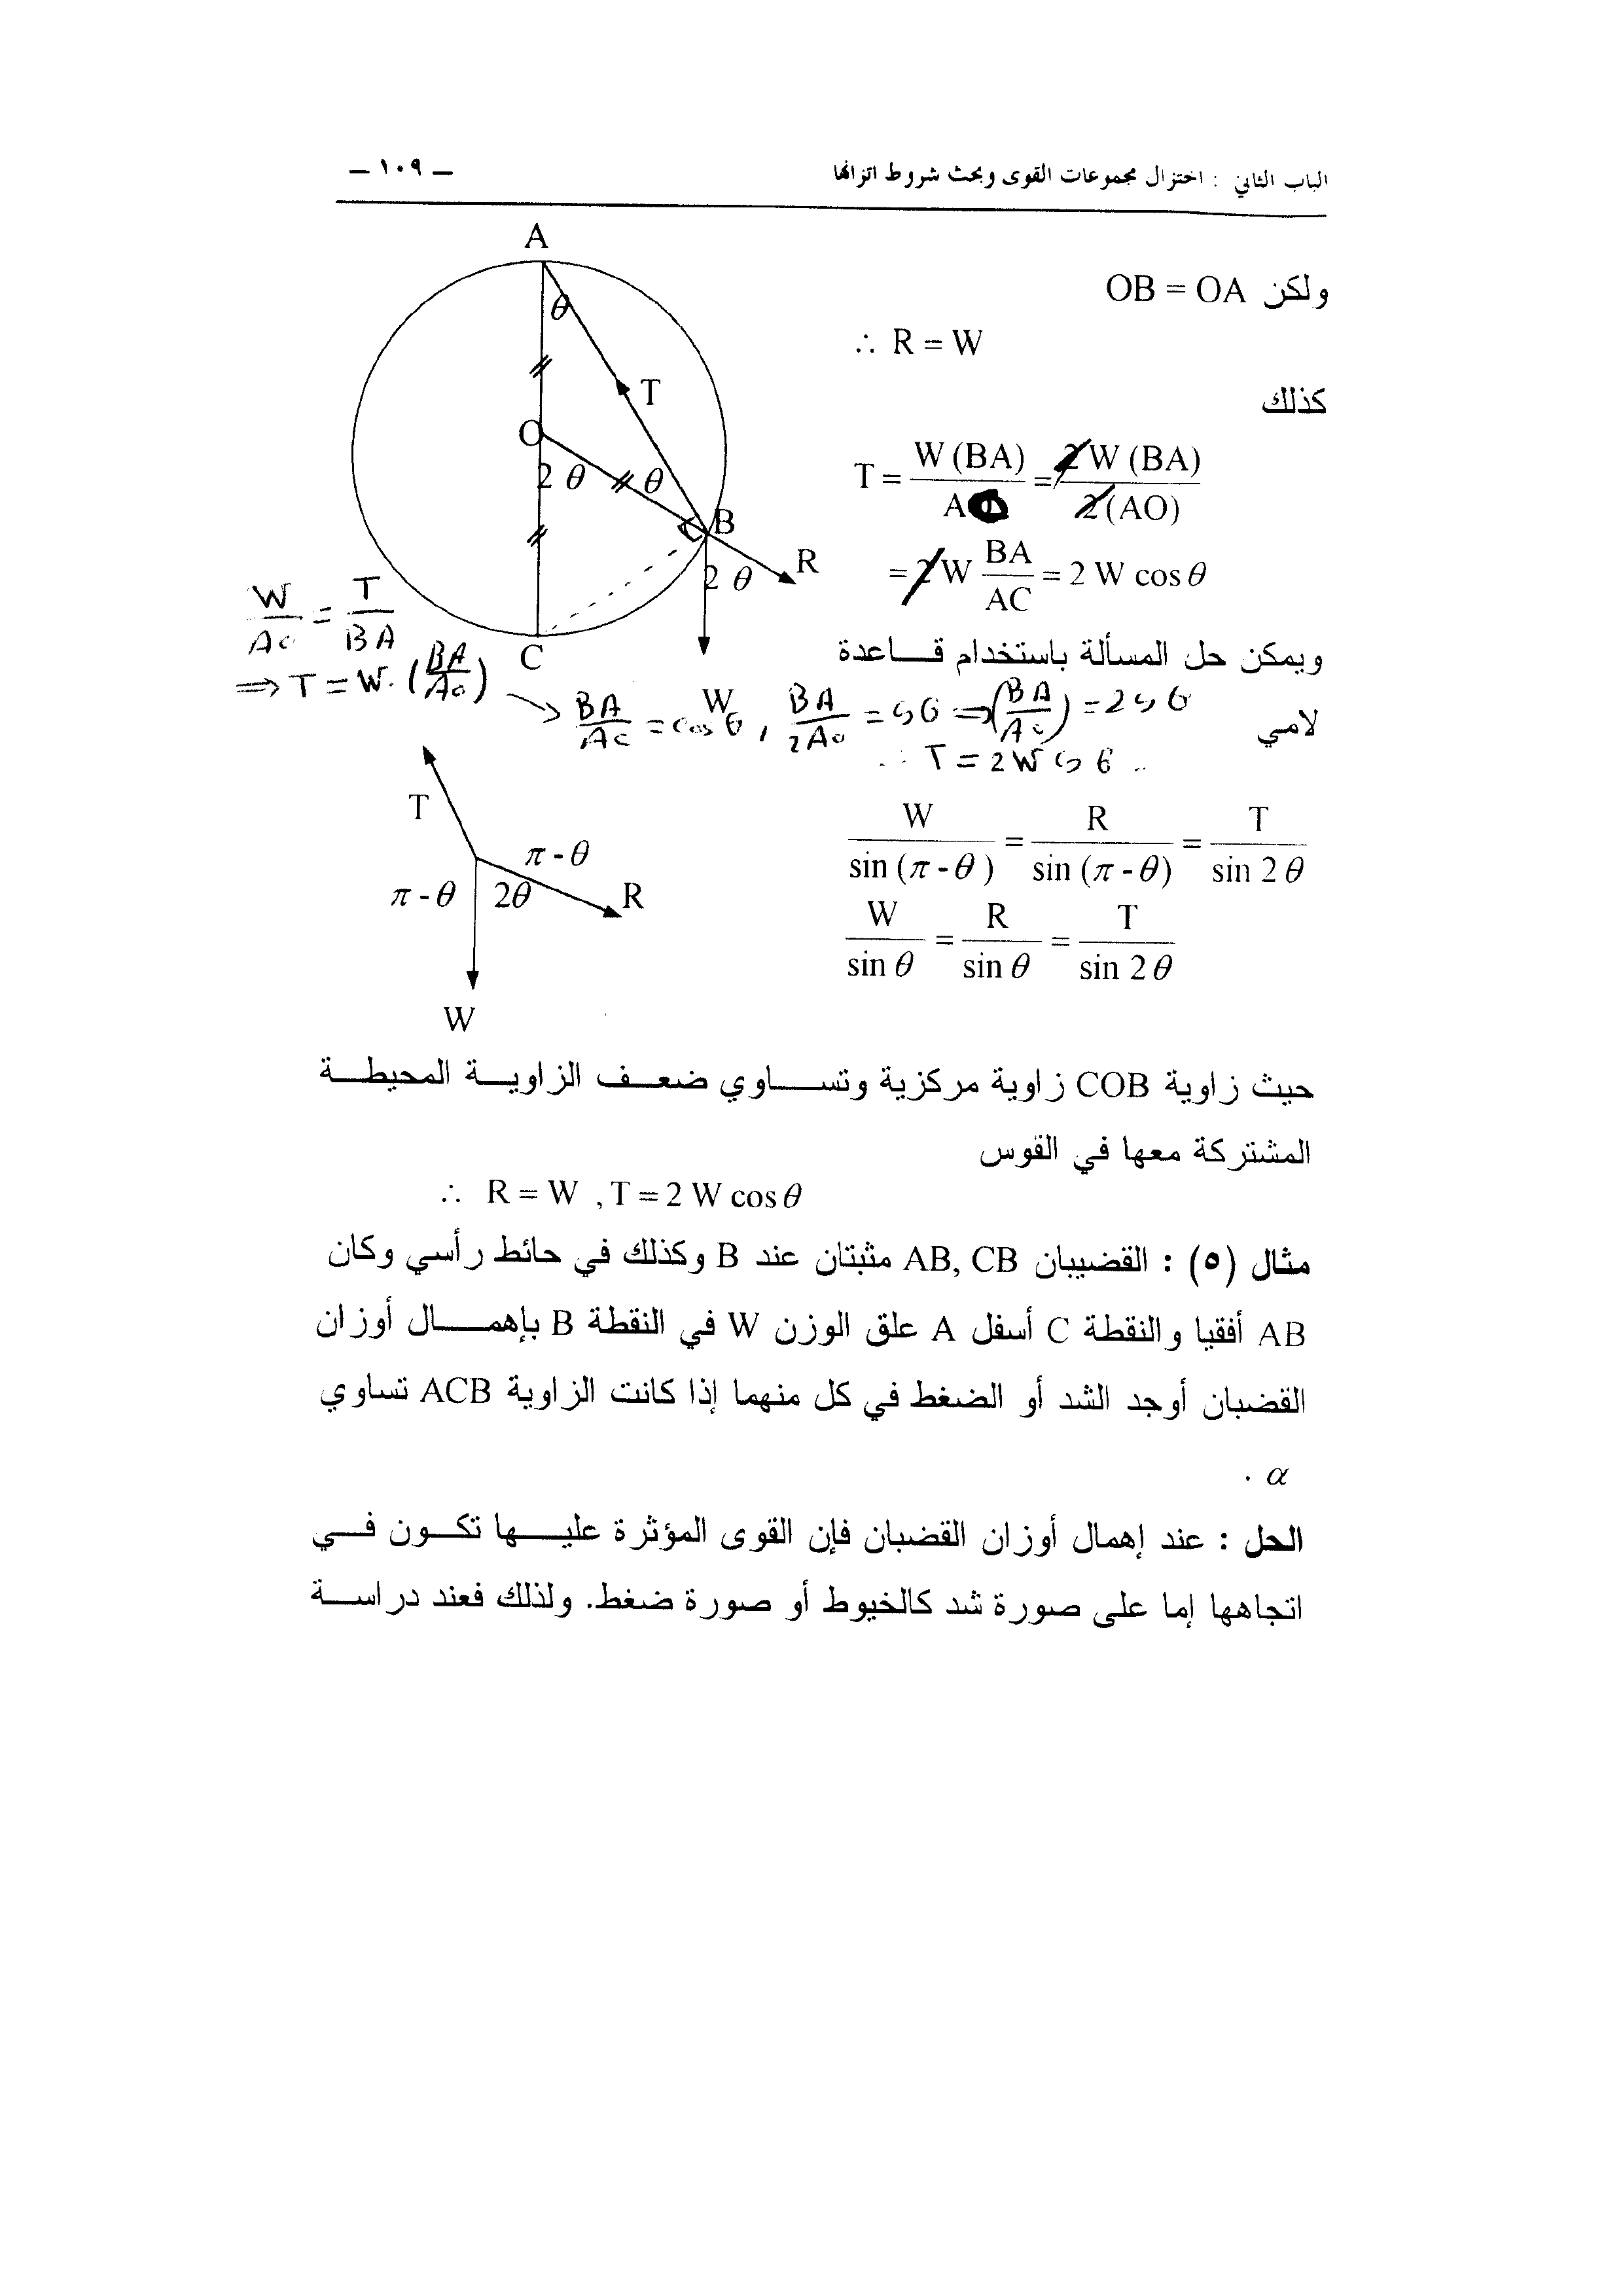 الباب الثاني : اختزال مجموعات القوى وبحث شروط اتزانها
– ١٠٩ –
ولكن OB = OA
∴ R = W
كذلك
T = W (BA) / AO = 2 W (BA) / 2 (AO)
= 2 W BA / AC = 2 W cos θ
A
θ
T
O
2 θ
θ
B
R
2 θ
C
W
W / AO = T / BA
⇒ T = W · (BA / AO)
BA / AC = cos θ , BA / 2AO = cos θ ⇒ (BA / AO) = 2 cos θ
∴ T = 2 W cos θ
ويمكن حل المسألة باستخدام قاعدة
لامي
T
π - θ
π - θ
2θ
R
W
W / sin (π - θ) = R / sin (π - θ) = T / sin 2 θ
W / sin θ = R / sin θ = T / sin 2 θ
حيث زاوية COB زاوية مركزية وتساوي ضعف الزاوية المحيطة
المشتركة معها في القوس
∴ R = W , T = 2 W cos θ
مثال (٥) : القضيبان AB, CB مثبتان عند B وكذلك في حائط رأسي وكان
AB أفقيا والنقطة C أسفل A علق الوزن W في النقطة B بإهمال أوزان
القضبان أوجد الشد أو الضغط في كل منهما إذا كانت الزاوية ACB تساوي
α .
الحل : عند إهمال أوزان القضبان فإن القوى المؤثرة عليها تكون في
اتجاهها إما على صورة شد كالخيوط أو صورة ضغط. ولذلك فعند دراسة